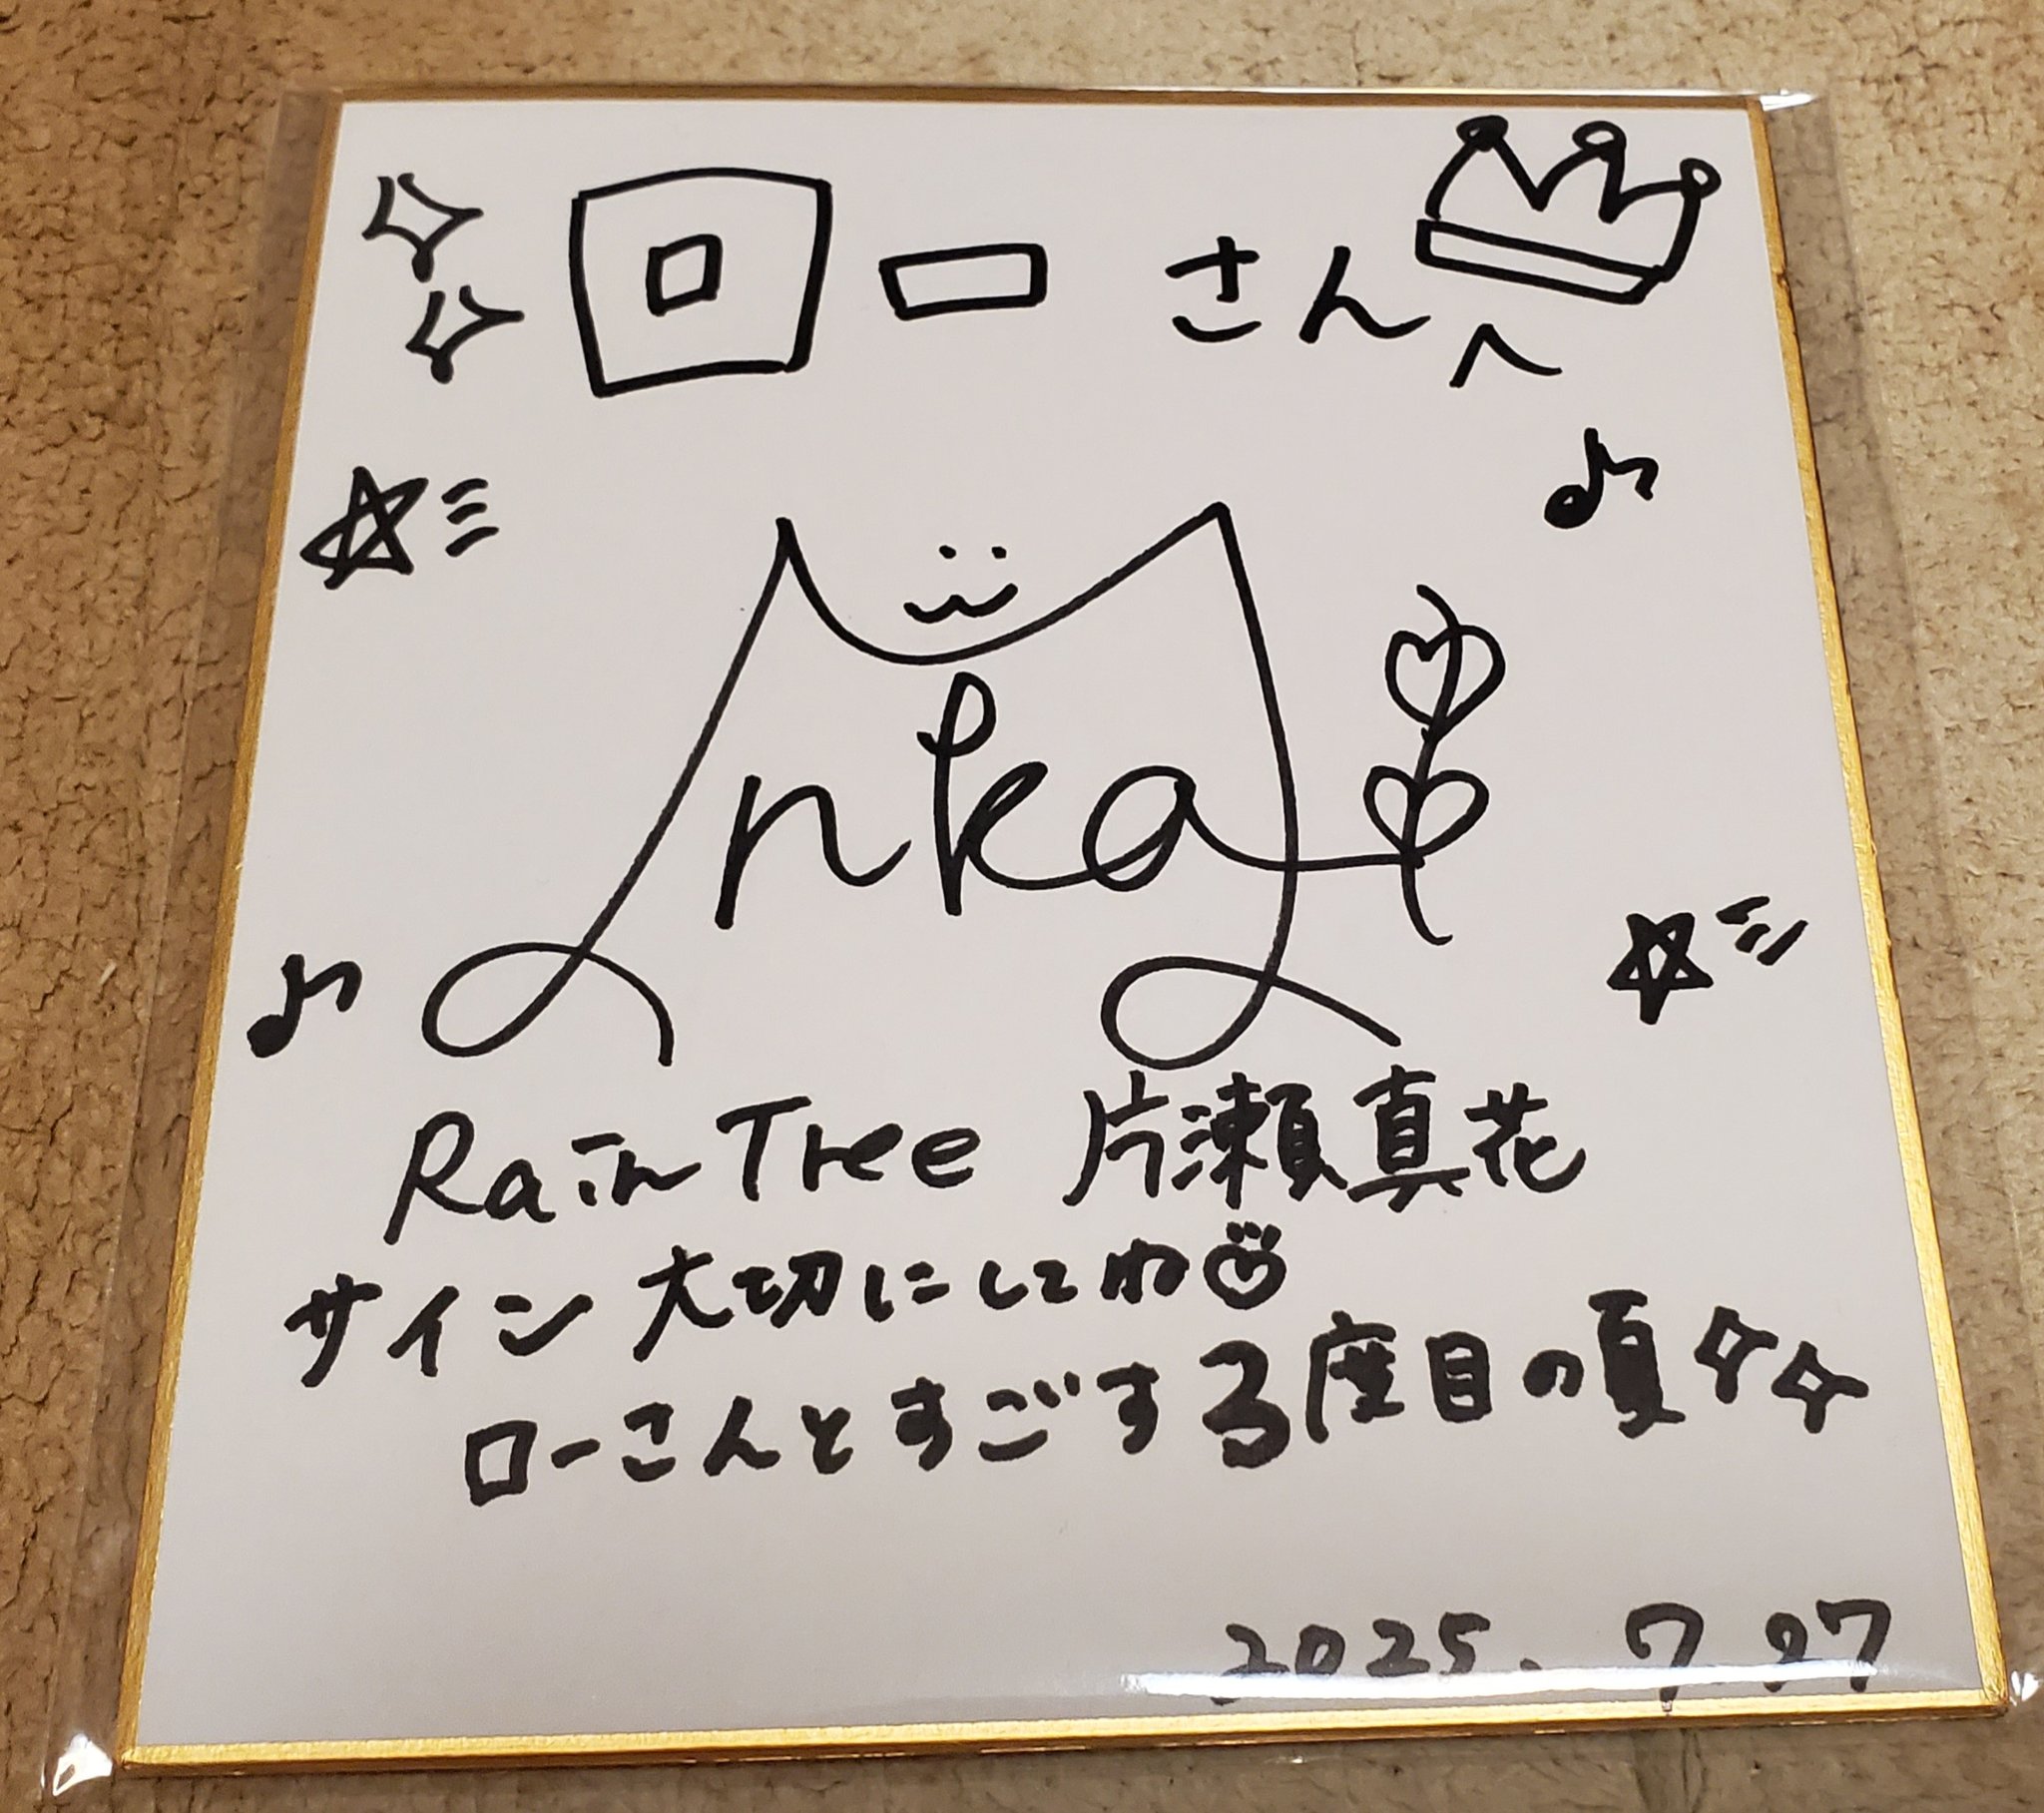 ローさんへ
Mnka
Rain Tree 片瀬真花
サイン大切にしてね
ローさんとすごす3度目の夏
2025.7.27